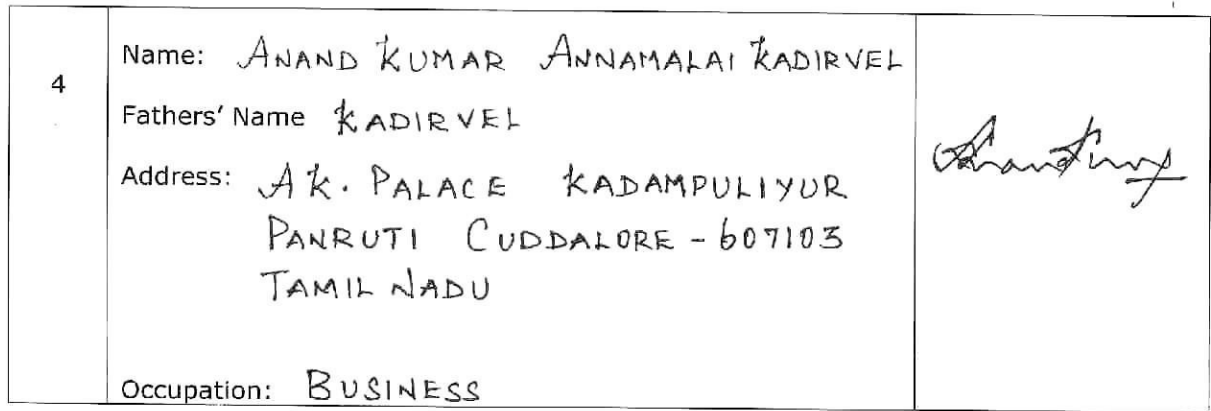 4
Name: ANAND KUMAR ANNAMALAI KADIRVEL
Fathers' Name KADIRVEL
Address: A K. PALACE KADAMPULIYUR
PANRUTI CUDDALORE - 607103
TAMIL NADU
Occupation: BUSINESS